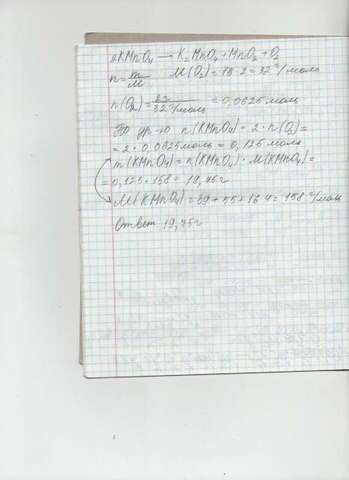 2KMnO₄ → K₂MnO₄ + MnO₂ + O₂
n = m/M M(O₂) = 16 · 2 = 32 г/моль
n(O₂) = 2г/32 г/моль = 0,0625 моль
По ур-ю n(KMnO₄) = 2 · n(O₂) =
= 2 · 0,0625 моль = 0,125 моль
m(KMnO₄) = n(KMnO₄) · M(KMnO₄) =
= 0,125 · 158 = 19,75 г
M(KMnO₄) = 39 + 55 + 16 · 4 = 158 г/моль
Ответ 19,75 г